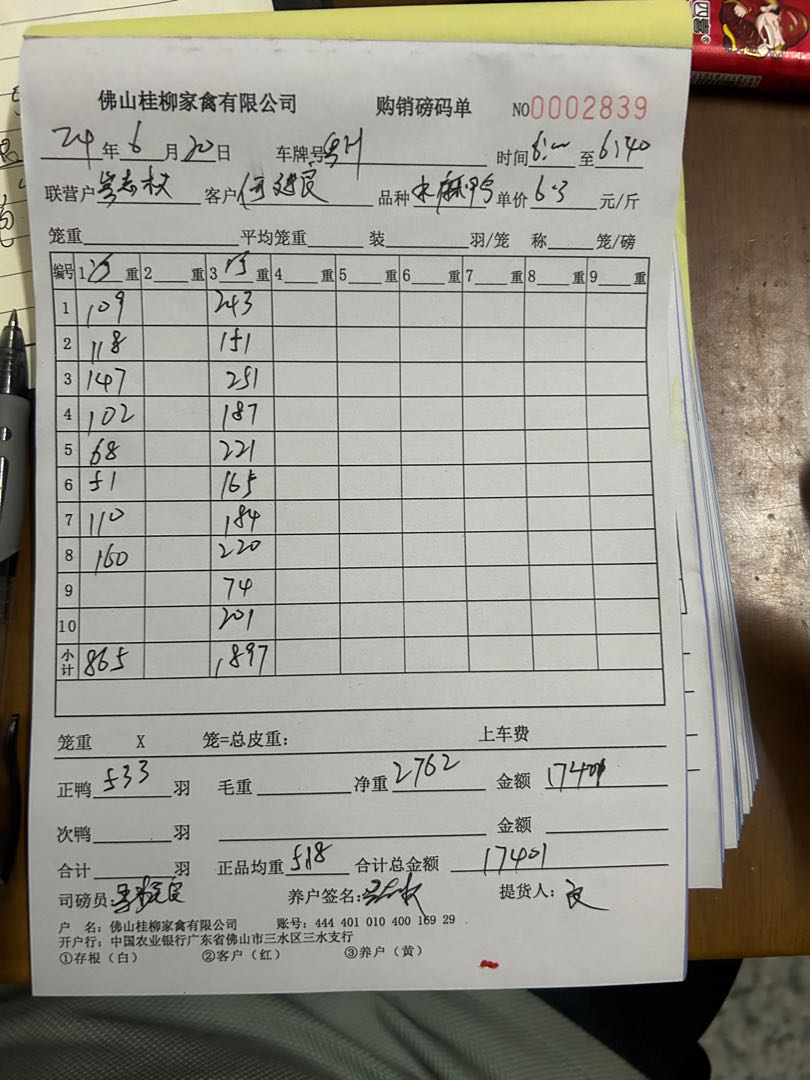 佛山桂柳家禽有限公司 购销磅码单 NO0002839
24年6月20日 车牌号 时间6:00至6:40
联营户 客户 品种水麻鸭 单价6.3元/斤
笼重 平均笼重 装 羽/笼 称 笼/磅
编号 1 重 2 重 3 重 4 重 5 重 6 重 7 重 8 重 9 重
1 109 243
2 118 151
3 147 251
4 102 187
5 68 221
6 51 165
7 110 184
8 160 220
9 74
10 201
小计 865 1897
笼重 X 笼=总皮重: 上车费
正鸭533羽 毛重 净重2762 金额17401
次鸭 羽 金额
合计 羽 正品均重518 合计总金额17401
司磅员: 养户签名: 提货人:
户 名: 佛山桂柳家禽有限公司 账号: 444 401 010 400 169 29
开户行: 中国农业银行广东省佛山市三水区三水支行
①存根(白) ②客户(红) ③养户(黄)